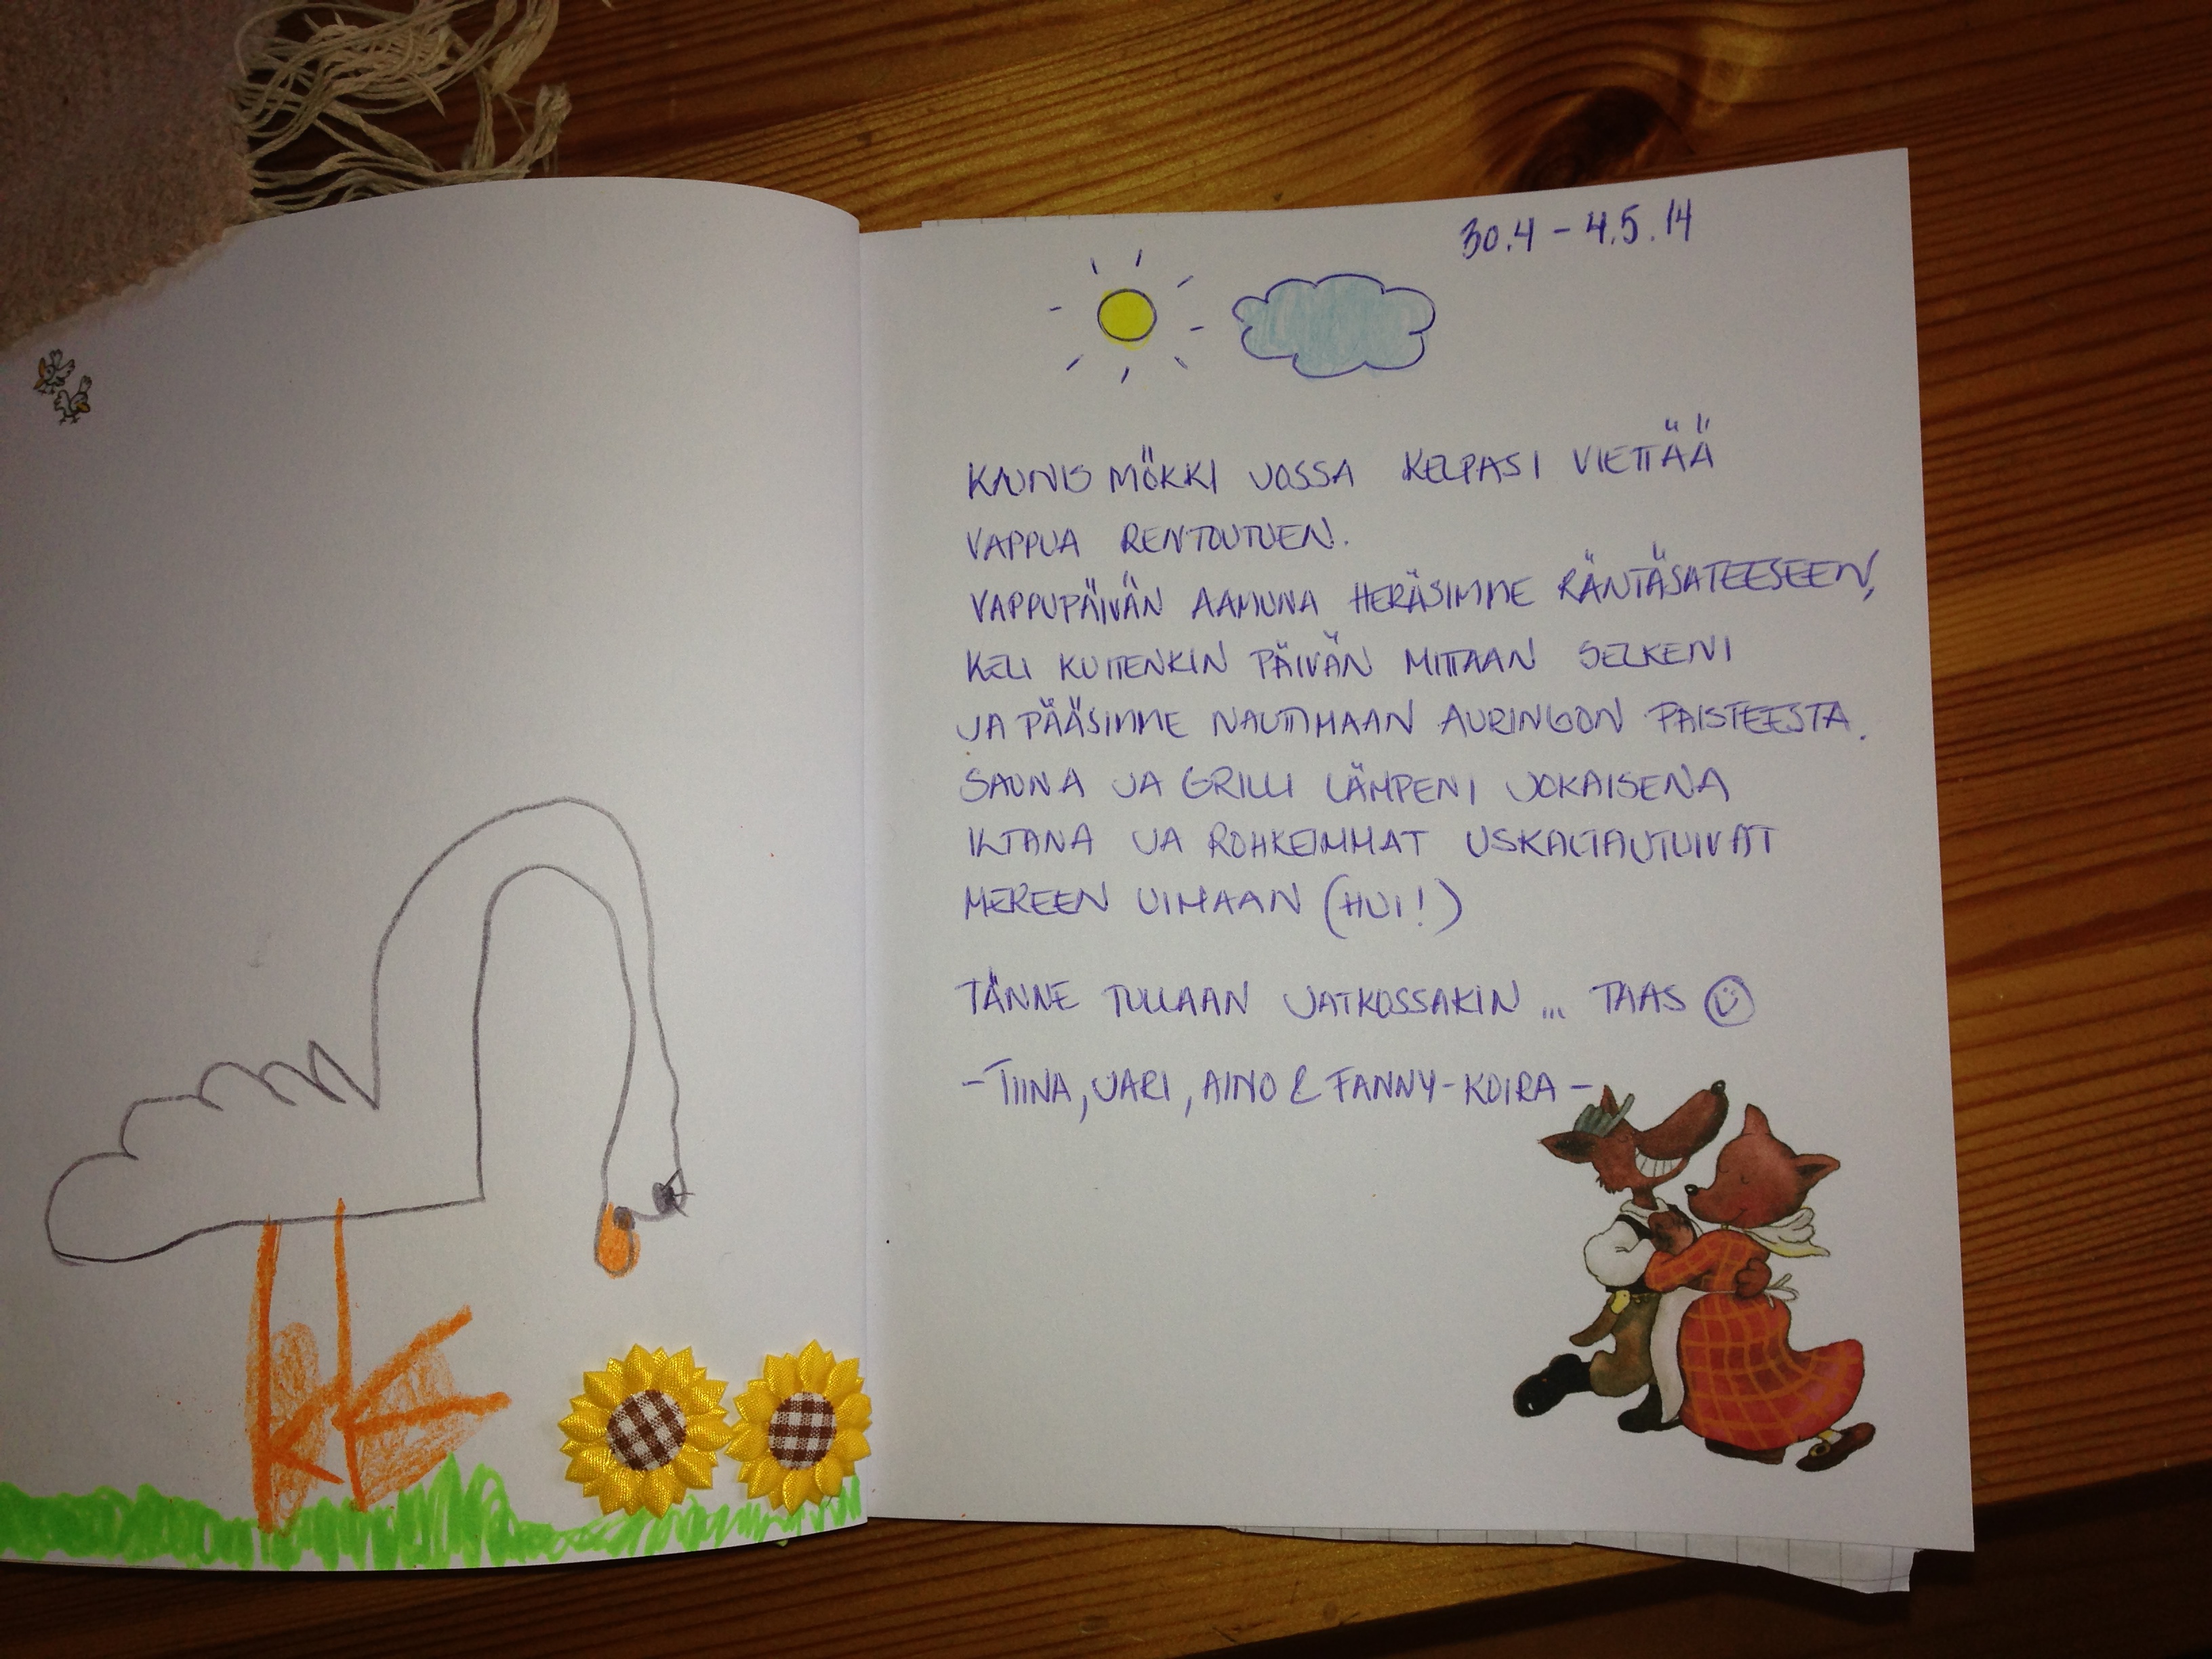 30.4 - 4.5.14
KAUNIS MÖKKI JOSSA KELPASI VIETTÄÄ
VAPPUA RENTOUTUEN.
VAPPUPÄIVÄN AAMUNA HERÄSIMME RÄNTÄSATEESEEN,
KELI KUITENKIN PÄIVÄN MITTAAN SELKENI
JA PÄÄSIMME NAUTTIMAAN AURINGON PAISTEESTA.
SAUNA JA GRILLI LÄMPENI JOKAISENA
ILTANA JA ROHKEIMMAT USKALTAUTUIVAT
MEREEN UIMAAN (HUI!)
TÄNNE TULLAAN JATKOSSAKIN ... TAAS ☺
- TIINA, JARI, AINO & FANNY-KOIRA -